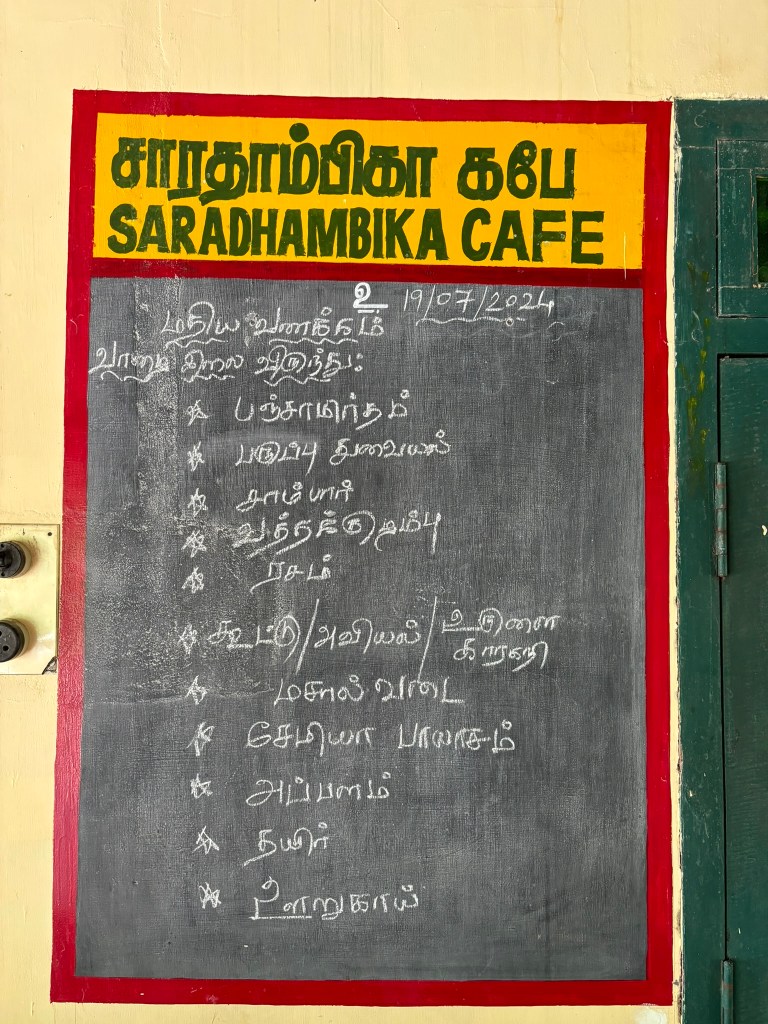 சாரதாம்பிகா கபே
SARADHAMBIKA CAFE
உ 19/07/2024
மதிய வணக்கம்
வாழை இலை விருந்து:
பஞ்சாமிர்தம்
பருப்பு துவையல்
சாம்பார்
வத்தக்குழம்பு
ரசம்
கூட்டு/அவியல்/உருளை
காரகறி
மசால் வடை
சேமியா பாயாசம்
அப்பளம்
தயிர்
ஊறுகாய்